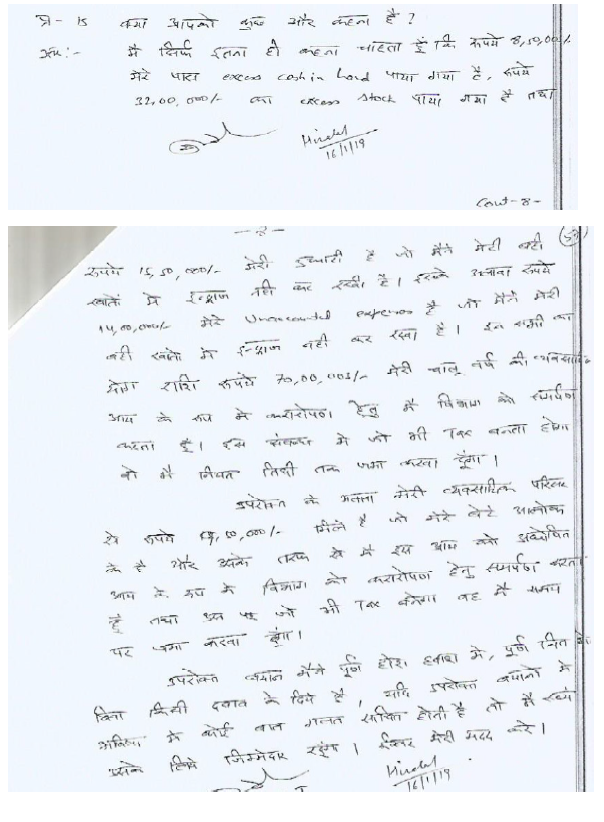 प्र - 15 क्या आपको कुछ और कहना है ?
उत्तर :- मैं सिर्फ इतना ही कहना चाहता हूँ कि रूपये 8,50,000/-
मेरे पास excess cash in hand पाया गया है, रूपये
32,00,000/- का excess stock पाया गया है तथा
16/1/19
Cont - 8 -
- 8 -
रूपये 15,50,000/- मेरी उधारी है जो मैंने मेरी बही
खातों में इन्द्राज नहीं कर रखी है। इसके अलावा रूपये
14,00,000/- मेरे Unaccounted expenses है जो मैंने मेरी
बही खातों में इन्द्राज नहीं कर रखा है। इन सभी का
योग राशि रूपये 70,00,000/- मेरी चालू वर्ष की व्यवसायिक
आय के रूप में करारोपण हेतु मैं विभाग को समर्पण
करता हूं। इस संबन्ध में जो भी Tax बनता होगा
वो मैं नियत तिथी तक जमा करवा दूंगा।
उपरोक्त के अलावा मेरी व्यवसायिक परिसर
से रूपये ,00,000/- मिले है जो मेरे बेटे आलोक
के है और उसके तरफ से मैं इस आय को अघोषित
आय के रूप में विभाग को करारोपण हेतु समर्पण करता
हूँ तथा इस पर जो भी Tax बनेगा वह मैं समय
पर जमा करवा दूंगा।
उपरोक्त बयान मैंने पूर्ण होश हवास में, पूर्ण चित से
बिना किसी दबाव के दिये है, यदि उपरोक्त बयानो में
भविष्य में कोई बात गलत साबित होती है तो मैं स्वयं
उसके लिये जिम्मेदार रहूंगा। ईश्वर मेरी मदद करे।
16/1/19